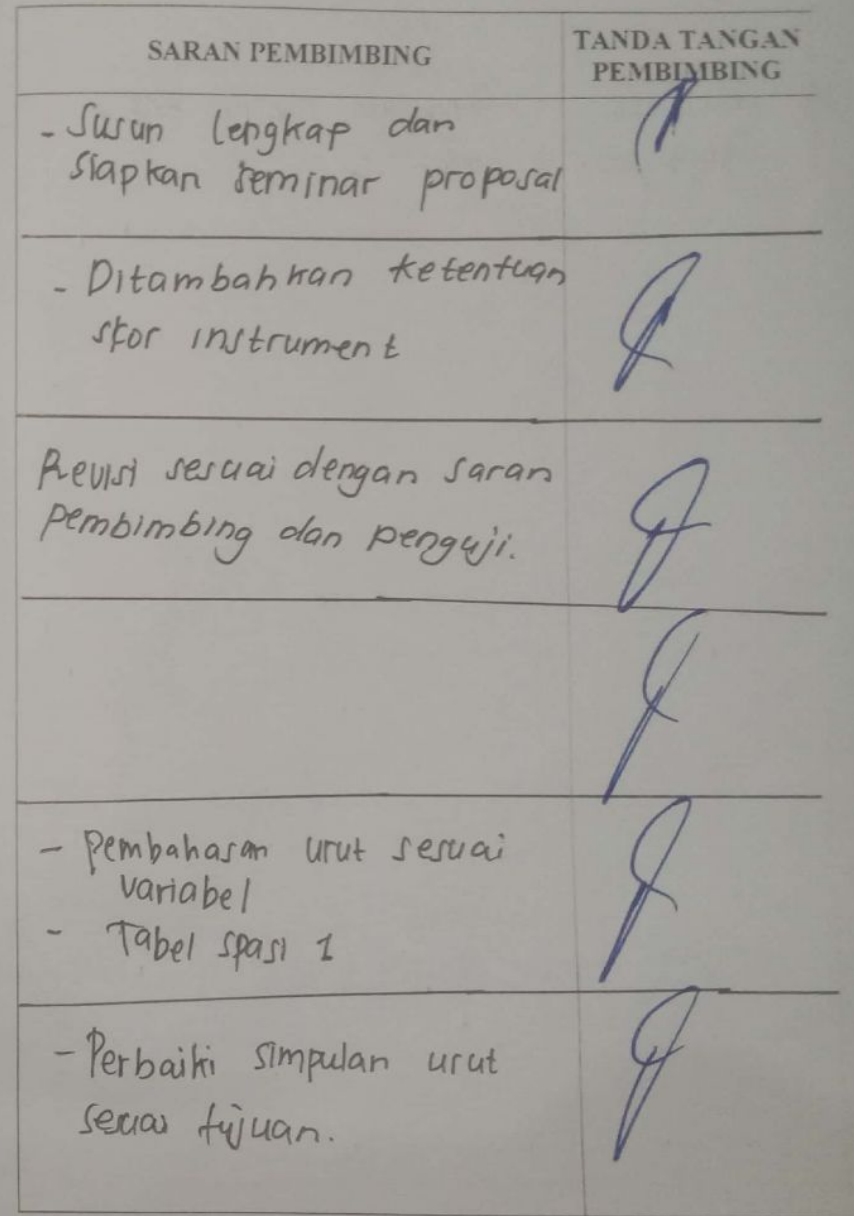 SARAN PEMBIMBING
TANDA TANGAN
PEMBIMBING
- Susun lengkap dan
siapkan seminar proposal
- Ditambahkan ketentuan
skor instrument
Revisi sesuai dengan saran
pembimbing dan penguji.
- pembahasan urut sesuai
variabel
- Tabel spasi 1
- Perbaiki simpulan urut
sesuai tujuan.